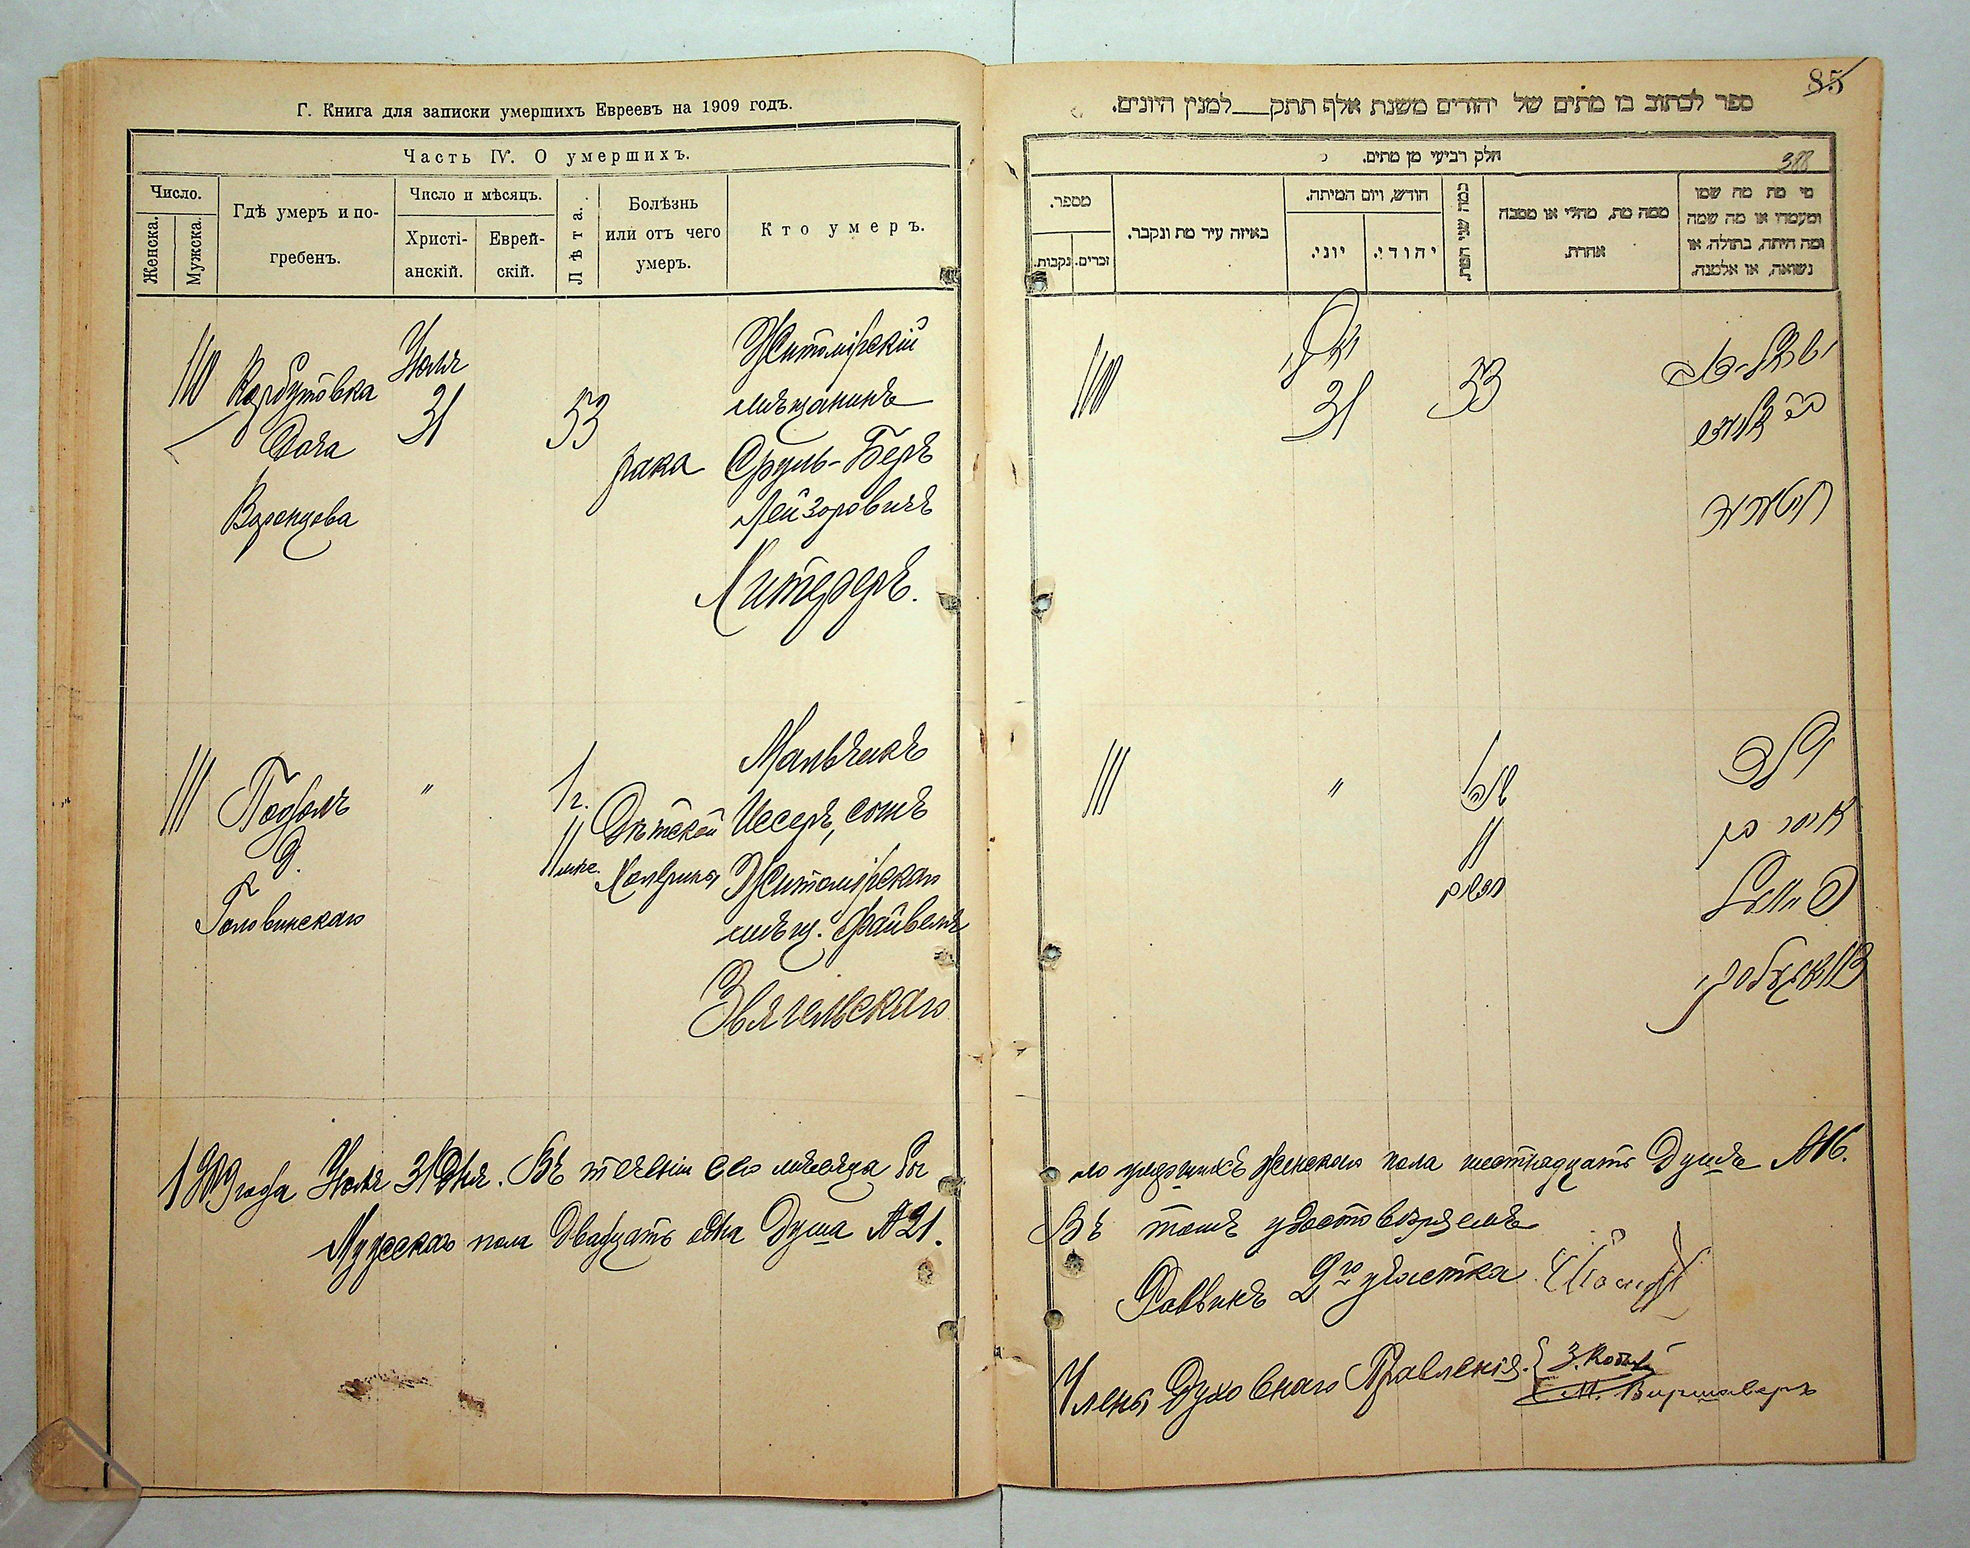 Г. Книга для записки умершихъ Евреевъ на 1909 годъ.
Часть IV. О умершихъ.
Число.
Женска.
Мужска.
Гдѣ умеръ и по-
гребенъ.
Число и мѣсяцъ.
Христі-
анскій.
Еврей-
скій.
Лѣта.
Болѣзнь
или отъ чего
умеръ.
Кто умеръ.
110
Корбутовка
Дача
Воронцова
Юля
31
53
рака
Житомірскій
мѣщанинъ
Сруль-Беръ
Лейзоровичъ
Хитереръ.
111
Подолъ
д.
Головинскаго
"
1 г.
11 мѣс.
Дѣтской
Холерины
Мальчикъ
Иссеръ, сынъ
Житомірскаго
мѣщ. Файвеля
Звягельскаго
1909 года Юля 31 дня. Въ теченіи сего мѣсяца бы
Мужскаго пола двадцать одна душа № 21.
85
ספר לכתוב בו מתים של יהודים משנת אלף תתק___למנין היונים.
חלק רביעי מן מתים.
388
מספר.
נקבות.
זכרים.
באיזה עיר מת ונקבר.
חודש, ויום המיתה.
יוני.
יהודי.
כמה שני המת.
ממה מת, מחלי או מסבה
אחרת.
מי מת מה שמו
ומעמדו או מה שמה
ומה היתה, בתולה, או
נשואה, או אלמנה.
110
יולי
31
53
ישראל-בער
חיטערער
111
"
1
11
ילד
איסר בן
פייוויל
זוויאהעלסקי
ло умершихъ женскаго пола шестнадцать душъ № 16.
Въ томъ удостовѣряемъ
Раввинъ 2го участка
Члены Духовнаго Правленія.
М. Виршаверъ